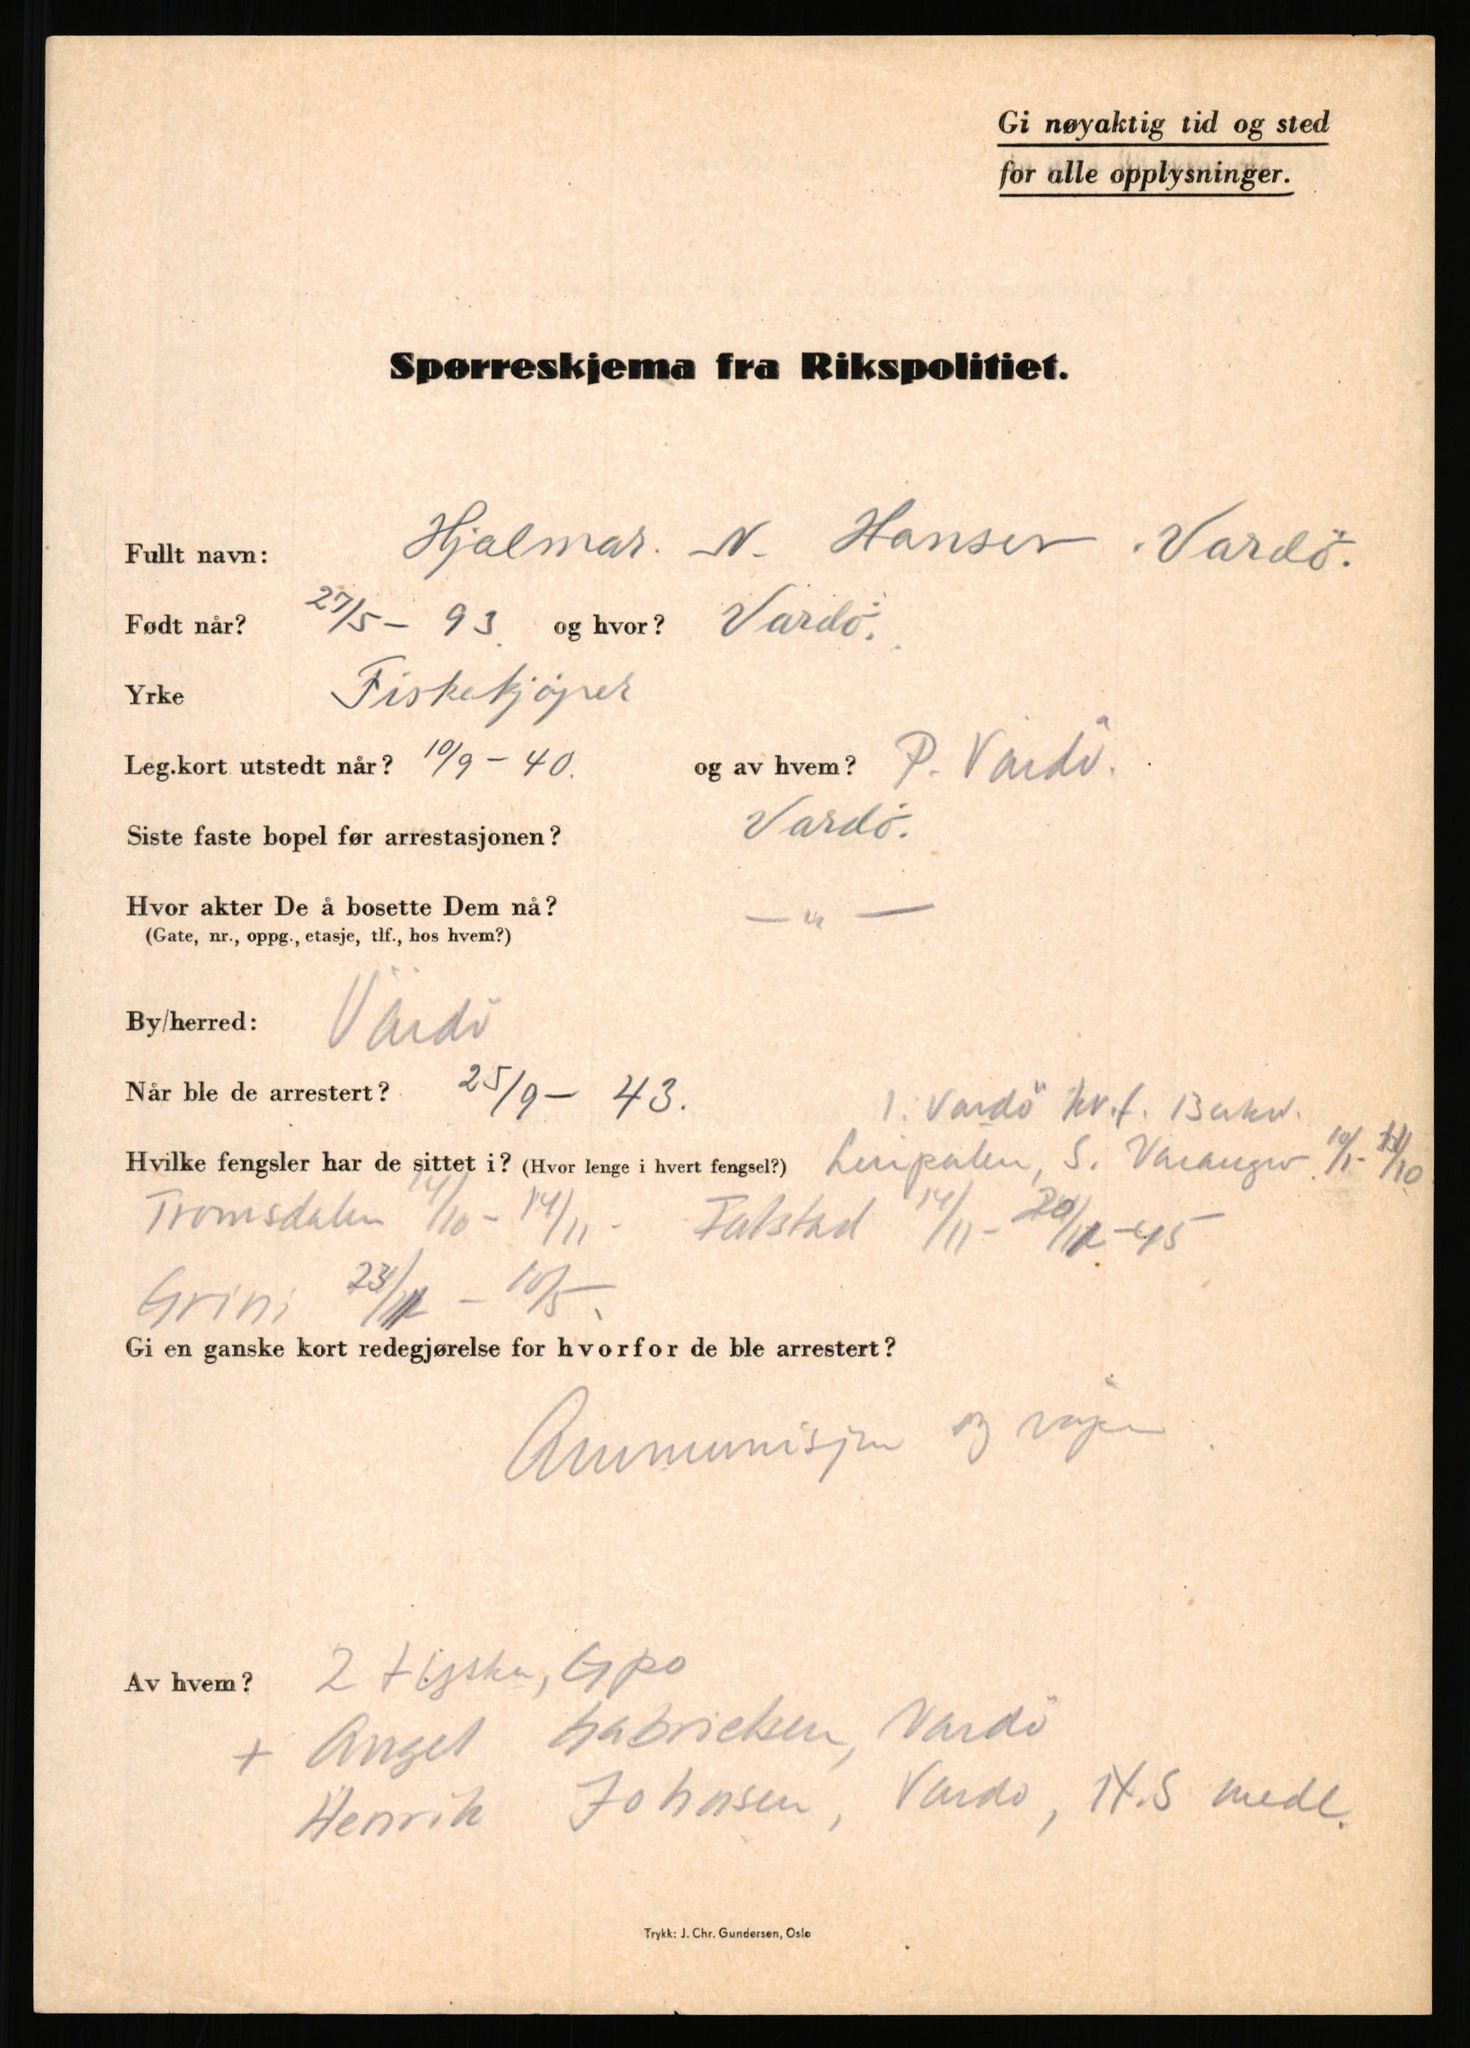 Gi nøyaktig tid og sted
for alle opplysninger.
Spørreskjema fra Rikspolitiet.
Fullt navn: Hjalmar. N. Hansen. Vardö.
Født når? 27/5 - 93 og hvor? Vardö.
Yrke Fiskekjøper
Leg.kort utstedt når? 10/9 - 40. og av hvem? P. Vardö.
Siste faste bopel før arrestasjonen? Vardö.
Hvor akter De å bosette Dem nå? — " —
(Gate, nr., oppg., etasje, tlf., hos hvem?)
By/herred: Vardö
Når ble de arrestert? 25/9 - 43.
1. Vardö
Hvilke fengsler har de sittet i? (Hvor lenge i hvert fengsel?) S. Varanger
Tromsdalen 14/10 - 14/11 - Falstad 14/11 - - 45
Grini - 10/5.
Gi en ganske kort redegjørelse for hvorfor de ble arrestert?
Ammunisjon og våpen
Av hvem? 2 tyskere, Gpo
+ Angel Gabrielsen, Vardö
Henrik Johnsen, Vardö, N.S medl.
Trykk: J. Chr. Gundersen, Oslo